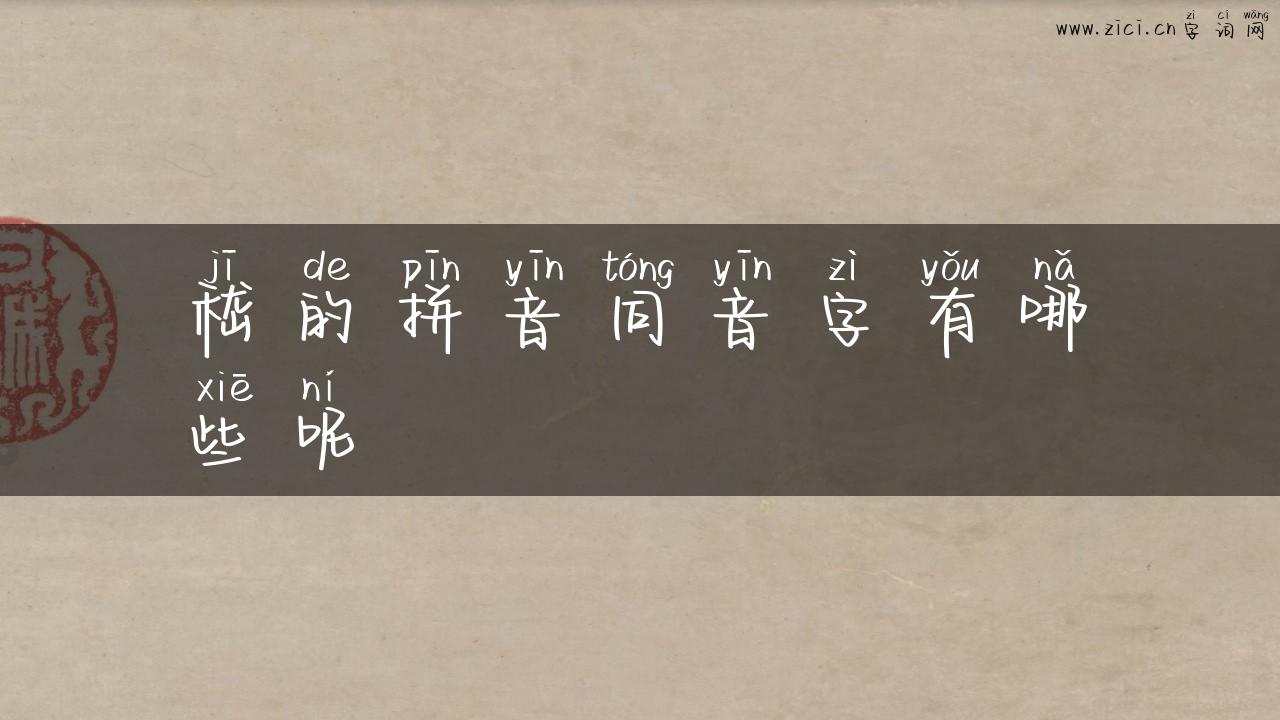 zì cí wǎng
www.zici.cn 字词网
jī de pīn yīn tóng yīn zì yǒu nǎ
嵇的拼音同音字有哪
xiē ní
些呢